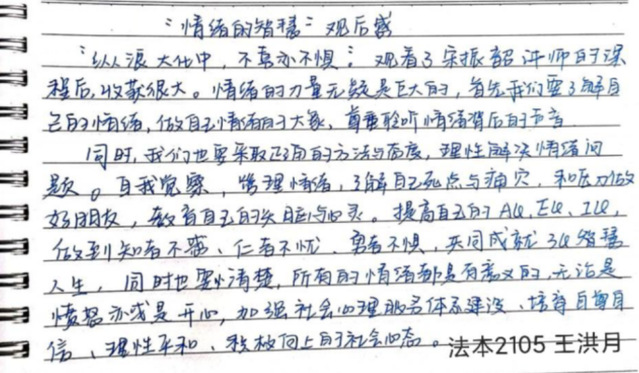 “情绪的智慧”观后感
“纵浪大化中，不喜亦不惧”观看了宋振韶讲师的课
程后，收获很大。情绪的力量无疑是巨大的，首先我们要了解自
己的情绪，做自己情绪的大象，尊重聆听情绪背后的声音
同时，我们也要采取正确的方法与态度，理性解决情绪问
题。自我觉察，管理情绪，了解自己死点与痛穴，和压力做
好朋友，教育自己的头脑与心灵。提高自己的AQ、EQ、IQ，
做到知者不惑、仁者不忧、勇者不惧，共同成就3Q智慧
人生，同时也要清楚，所有的情绪都是有意义的，无论是
愤怒亦或是开心，加强社会心理服务体系建设、培育自尊自
信、理性平和、积极向上的社会心态。
法本2105 王洪月